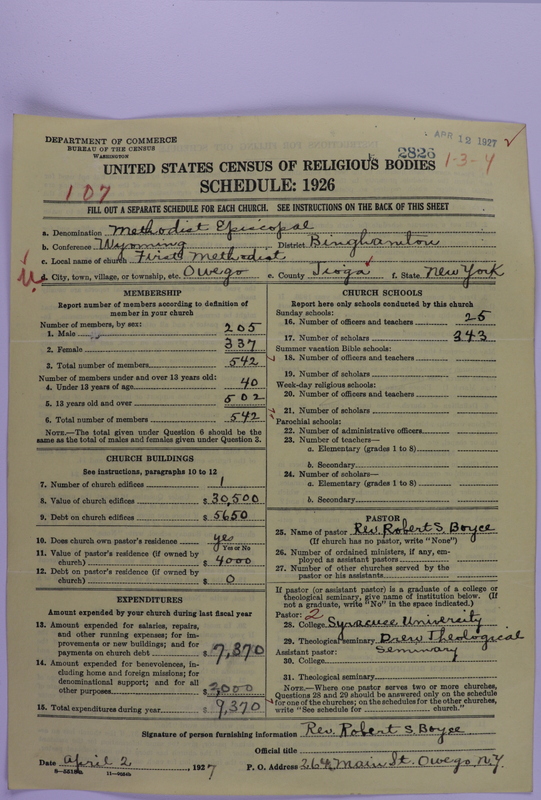 APR 12 1927
DEPARTMENT OF COMMERCE
BUREAU OF THE CENSUS
WASHINGTON
2826
1-3-4
UNITED STATES CENSUS OF RELIGIOUS BODIES
SCHEDULE: 1926
107
FILL OUT A SEPARATE SCHEDULE FOR EACH CHURCH. SEE INSTRUCTIONS ON THE BACK OF THIS SHEET
a. Denomination Methodist Episcopal
b. Conference Wyoming District Binghamton
c. Local name of church First Methodist
d. City, town, village, or township, etc. Owego e. County Tioga f. State New York
MEMBERSHIP
Report number of members according to definition of
member in your church
Number of members, by sex:
1. Male 205
2. Female 337
3. Total number of members 542
Number of members under and over 13 years old:
4. Under 13 years of age 40
5. 13 years old and over 502
6. Total number of members 542
NOTE.—The total given under Question 6 should be the
same as the total of males and females given under Question 3.
CHURCH BUILDINGS
See instructions, paragraphs 10 to 12
7. Number of church edifices 1
8. Value of church edifices $ 30,500
9. Debt on church edifices $ 5650
10. Does church own pastor's residence yes
Yes or No
11. Value of pastor's residence (if owned by
church) $ 4000
12. Debt on pastor's residence (if owned by
church) $ 0
EXPENDITURES
Amount expended by your church during last fiscal year
13. Amount expended for salaries, repairs,
and other running expenses; for im-
provements or new buildings; and for
payments on church debt $ 7,370
14. Amount expended for benevolences, in-
cluding home and foreign missions; for
denominational support; and for all
other purposes $ 2,000
15. Total expenditures during year $ 9,370
CHURCH SCHOOLS
Report here only schools conducted by this church
Sunday schools:
16. Number of officers and teachers 25
17. Number of scholars 343
Summer vacation Bible schools:
18. Number of officers and teachers
19. Number of scholars
Week-day religious schools:
20. Number of officers and teachers
21. Number of scholars
Parochial schools:
22. Number of administrative officers
23. Number of teachers—
a. Elementary (grades 1 to 8)
b. Secondary
24. Number of scholars—
a. Elementary (grades 1 to 8)
b. Secondary
PASTOR
25. Name of pastor Rev. Robert S. Boyce
(If church has no pastor, write "None")
26. Number of ordained ministers, if any, em-
ployed as assistant pastors
27. Number of other churches served by the
pastor or his assistants
If pastor (or assistant pastor) is a graduate of a college or
theological seminary, give name of institution below. (If
not a graduate, write "No" in the space indicated.)
Pastor: 2
28. College Syracuse University
29. Theological seminary Drew Theological
Assistant pastor: Seminary
30. College
31. Theological seminary
NOTE.—Where one pastor serves two or more churches,
Questions 28 and 29 should be answered only on the schedule
for one of the churches; on the schedules for the other churches,
write "See schedule for church."
Signature of person furnishing information Rev. Robert S. Boyce
Official title
Date April 2, 1927 P. O. Address 264 Main St. Owego, N.Y.